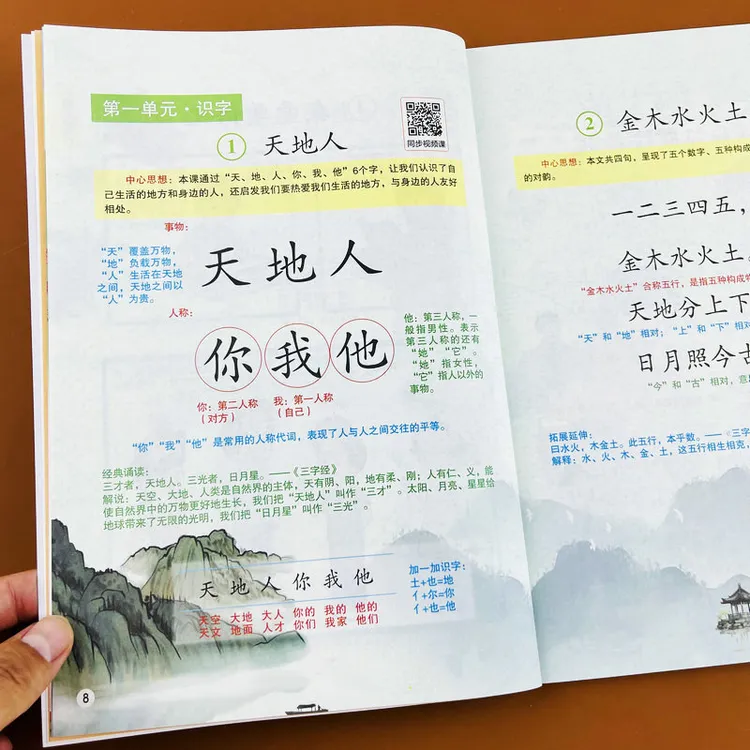 第一单元·识字
同步视频课
1 天地人
中心思想：本课通过“天、地、人、你、我、他”6个字，让我们认识了自
己生活的地方和身边的人，还启发我们要热爱我们生活的地方，与身边的人友好
相处。
事物：
“天”覆盖万物，
“地”负载万物，
“人”生活在天地
之间，天地之间以
“人”为贵。
天地人
人称：
你我他
他：第三人称，一
般指男性。表示
第三人称的还有
“她”“它”。
“她”指女性，
“它”指人以外的
事物。
你：第二人称
（对方）
我：第一人称
（自己）
“你”“我”“他”是常用的人称代词，表现了人与人之间交往的平等。
经典诵读：
三才者，天地人。三光者，日月星。——《三字经》
解说：天空、大地、人类是自然界的主体，天有阴、阳，地有柔、刚；人有仁、义，能
使自然界中的万物更好地生长，我们把“天地人”叫作“三才”。太阳、月亮、星星给
地球带来了无限的光明，我们把“日月星”叫作“三光”。
天地人你我他
天空 大地 大人 你的 我的 他的
天文 地面 人才 你们 我家 他们
加一加识字：
土+也=地
亻+尔=你
亻+也=他
8
2 金木水火土
中心思想：本文共四句，呈现了五个数字、五种构成
的对韵。
一二三四五，
金木水火土。
“金木水火土”合称五行，是指五种构成物
天地分上下
“天”和“地”相对；“上”和“下”相对
日月照今古
“今”和“古”相对，意
拓展延伸：
曰水火，木金土。此五行，本乎数。——《三字
解释：水、火、木、金、土，这五行相生相克，